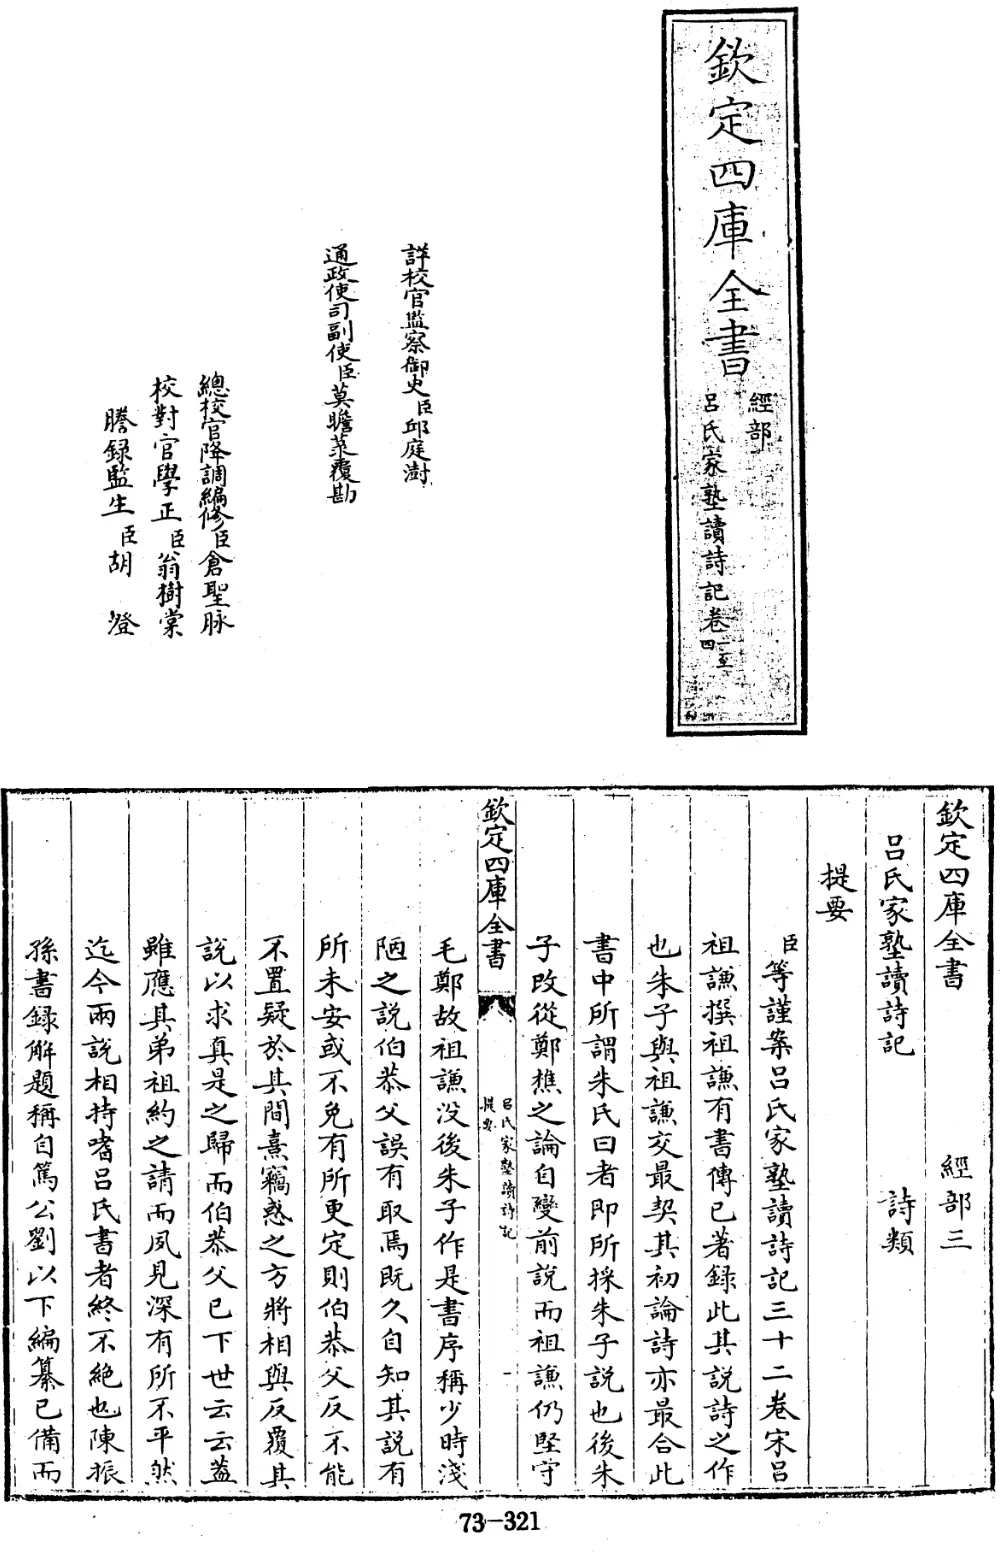 欽定四庫全書
經部
呂氏家塾讀詩記卷一至四
詳校官監察御史臣邱庭澍
通政使司副使臣莫瞻菉覆勘
總校官降調編修臣倉聖脉
校對官學正臣翁樹棠
謄録監生臣胡燈
欽定四庫全書 經部三
呂氏家塾讀詩記 詩類
提要
臣等謹案呂氏家塾讀詩記三十二卷宋呂
祖謙撰祖謙有書傳已著録此其說詩之作
也朱子與祖謙交最契其初論詩亦最合此
書中所謂朱氏曰者即所採朱子說也後朱
子改從鄭樵之論自變前說而祖謙仍堅守
欽定四庫全書
呂氏家塾讀詩記
提要
一
毛鄭故祖謙没後朱子作是書序稱少時淺
陋之說伯恭父誤有取焉既久自知其說有
所未安或不免有所更定則伯恭父反不能
不置疑於其間熹竊惑之方將相與反覆其
說以求真是之歸而伯恭父已下世云云葢
雖應其弟祖約之請而夙見深有所不平然
迄今兩說相持嗜呂氏書者終不絶也陳振
孫書録解題稱自篤公劉以下編纂已備而
73-321